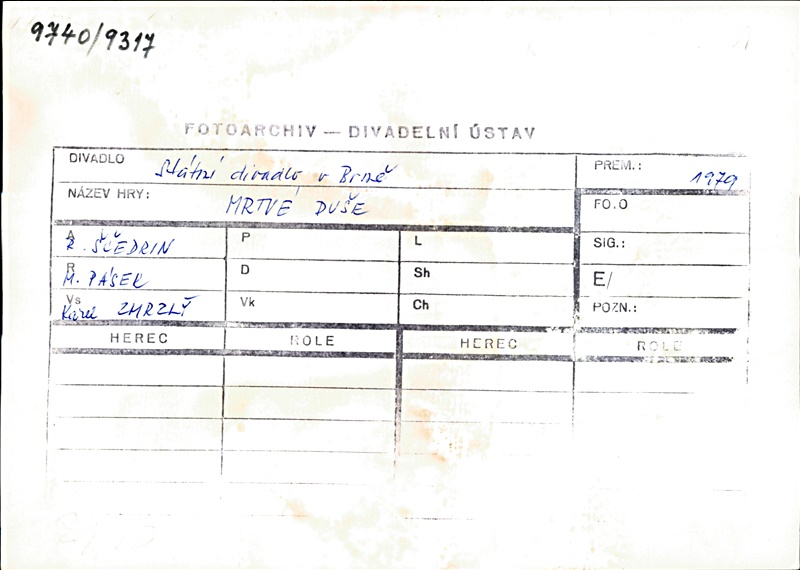 9740/9317
FOTOARCHIV — DIVADELNÍ ÚSTAV
DIVADLO Státní divadlo v Brně PREM.: 1979
NÁZEV HRY: MRTVÉ DUŠE FO.O
A R. ŠČEDRIN P L SIG.:
R M. PÁSEK D Sh E/
Vs Karel ZMRZLÝ Vk Ch POZN.:
HEREC ROLE HEREC ROLE